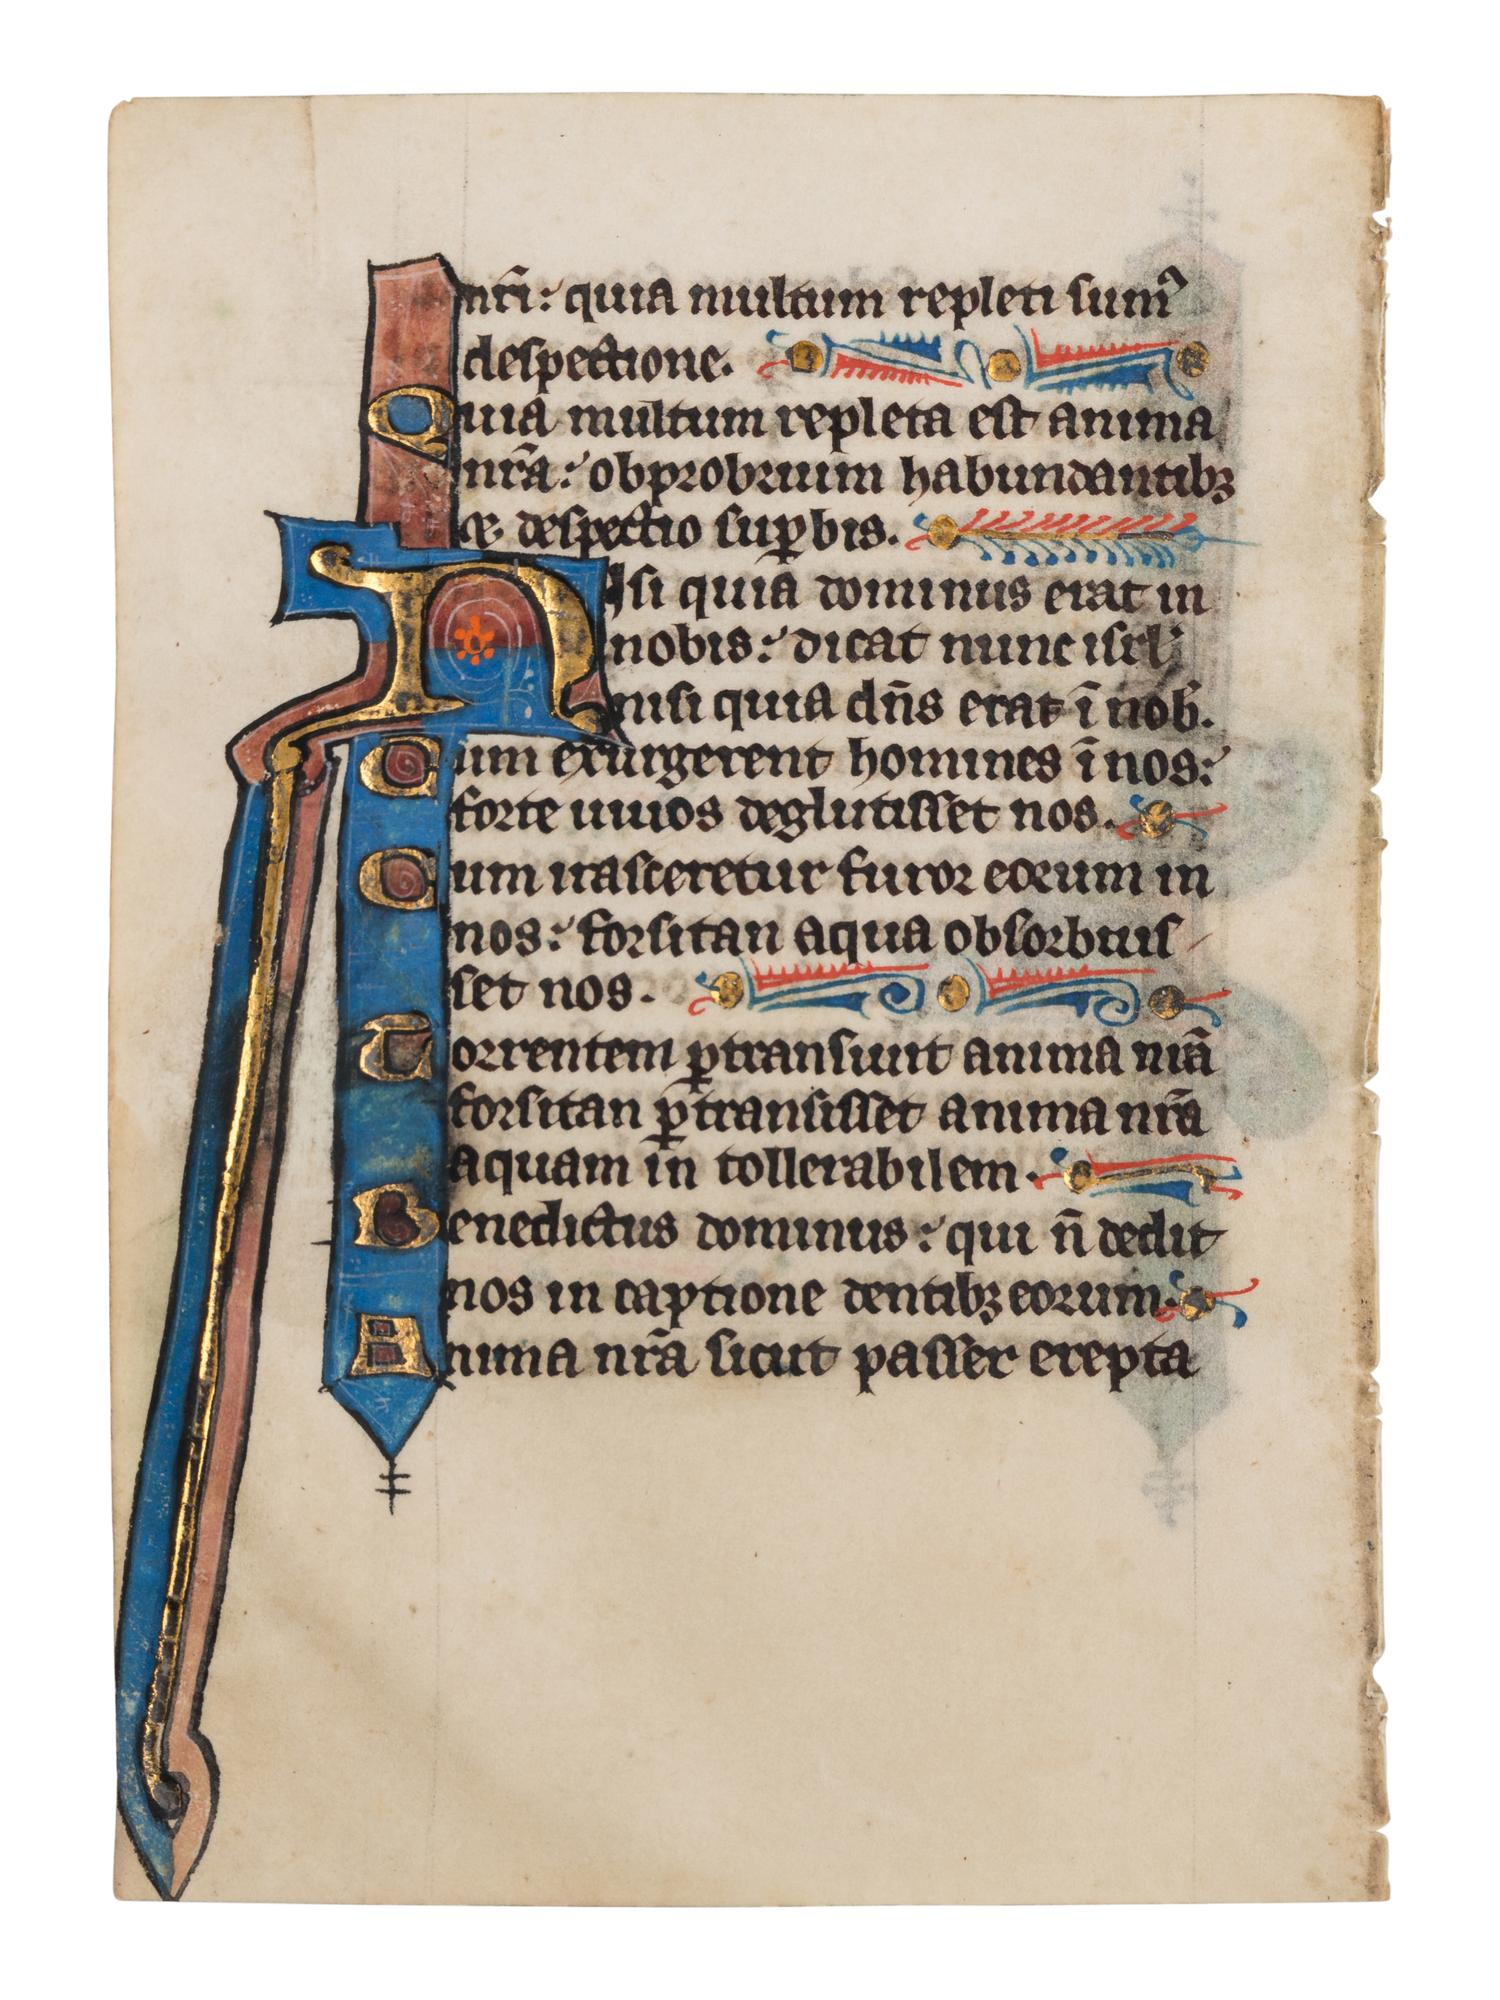 nr̃i: quia multum repleti sumꝰ
despectione.
Quia multum repleta est anima
nr̃a: obprobrium habundantibꝫ
et despectio suꝑbis.
Nisi quia dominus erat in
nobis: dicat nunc isrl̕
nisi quia dñs erat ĩ nob̕.
Cum exurgerent homines ĩ nos:
forte uiuos deglutisset nos.
Cum irasceretur furor eorum in
nos: forsitan aqua obsorbuis
set nos.
Torrentem ꝑtransiuit anima nr̃a
forsitan ꝑtransisset anima nr̃a
aquam in tollerabilem.
Benedictus dominus: qui ñ dedit
nos in captione dentibꝫ eorum.
Anima nr̃a sicut passer erepta